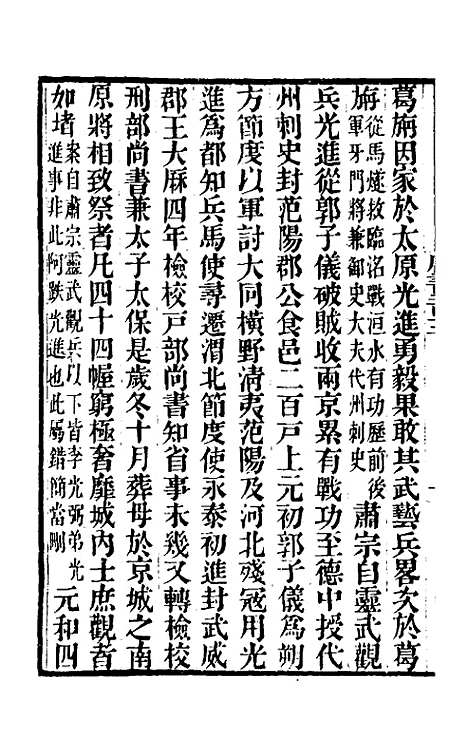 葛旃因家於太原光進勇毅果敢其武藝兵畧次於葛
旃從馬燧救臨洺戰洹水有功歷前後軍牙門將兼御史大夫代州刺史肅宗自靈武觀
兵光進從郭子儀破賊收兩京累有戰功至德中授代
州刺史封范陽郡公食邑二百戸上元初郭子儀爲朔
方節度以軍討大同橫野清夷范陽及河北殘冦用光
進爲都知兵馬使尋遷渭北節度使永泰初進封武威
郡王大厤四年檢校戸部尚書知省事未幾又轉檢校
刑部尚書兼太子太保是歲冬十月葬母於京城之南
原將相致祭者凡四十四幄窮極奢靡城內士庶觀者
如堵案自肅宗靈武觀兵以下皆李光弼弟光進事非此阿跌光進也此屬錯簡當刪元和四